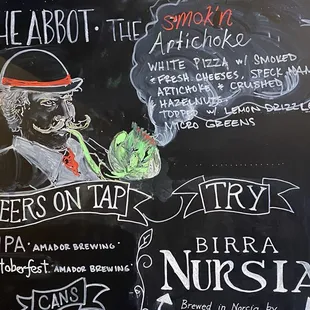 HE ABBOT · THE
SMOK'N
Artichoke
WHITE PIZZA W/ SMOKED
+ FRESH CHEESES, SPECK HAM
ARTICHOKE + CRUSHED
HAZELNUTS,
TOPPED W/ LEMON DRIZZLE
MICRO GREENS
EERS ON TAP
PA · AMADOR BREWING ·
toberfest · AMADOR BREWING ·
CANS
TRY
BIRRA
NURSIA
Brewed in Norcia by